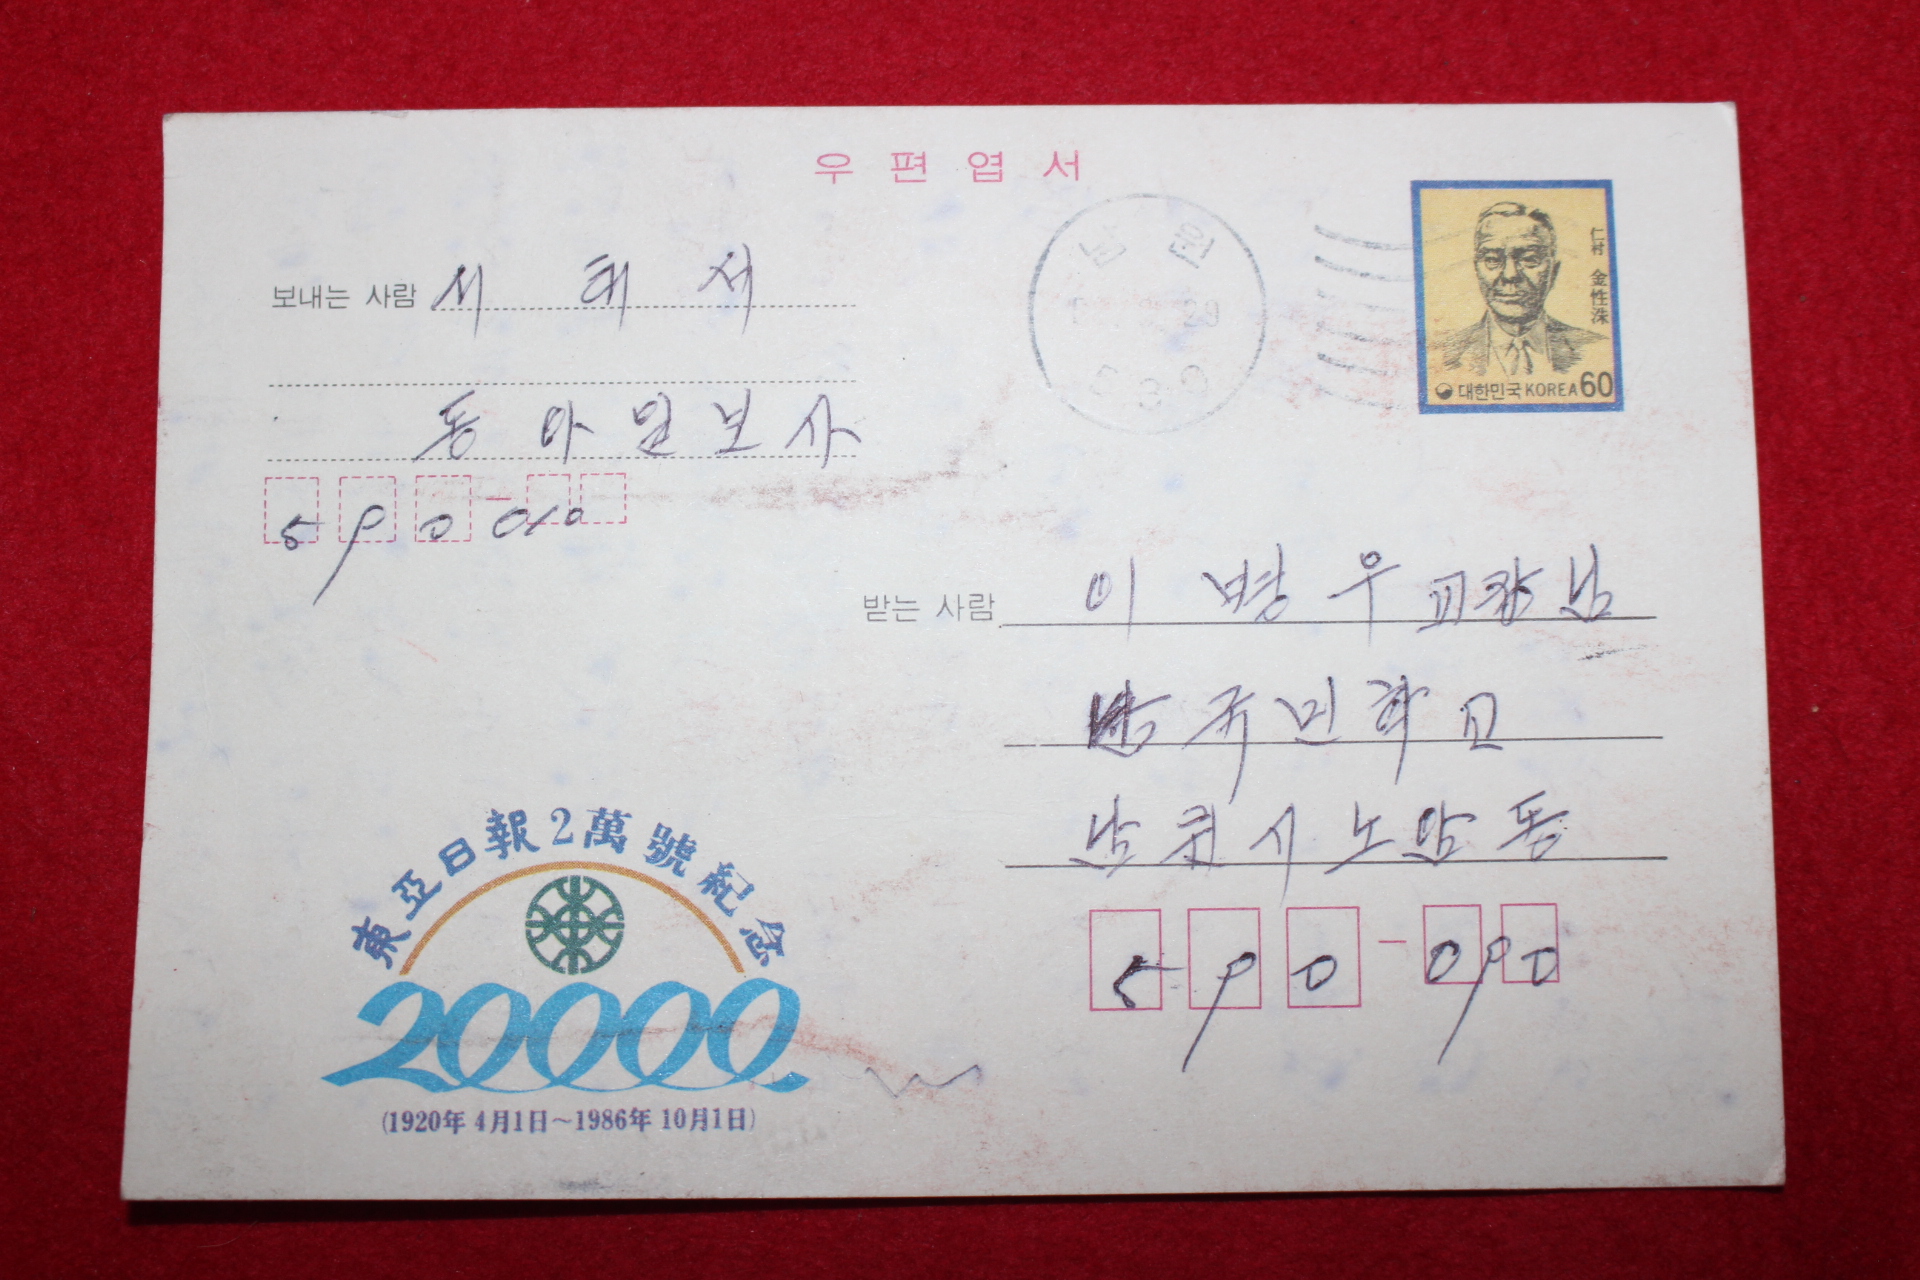 우편엽서
보내는 사람 서 태 석
동아일보사
590-010
남원
29
530
仁村 金性洙
대한민국 KOREA 60
받는 사람 이 병 우 교장님
남국민학교
남원시 노암동
590-090
東亞日報2萬號紀念
20000
(1920年 4月1日~1986年 10月1日)